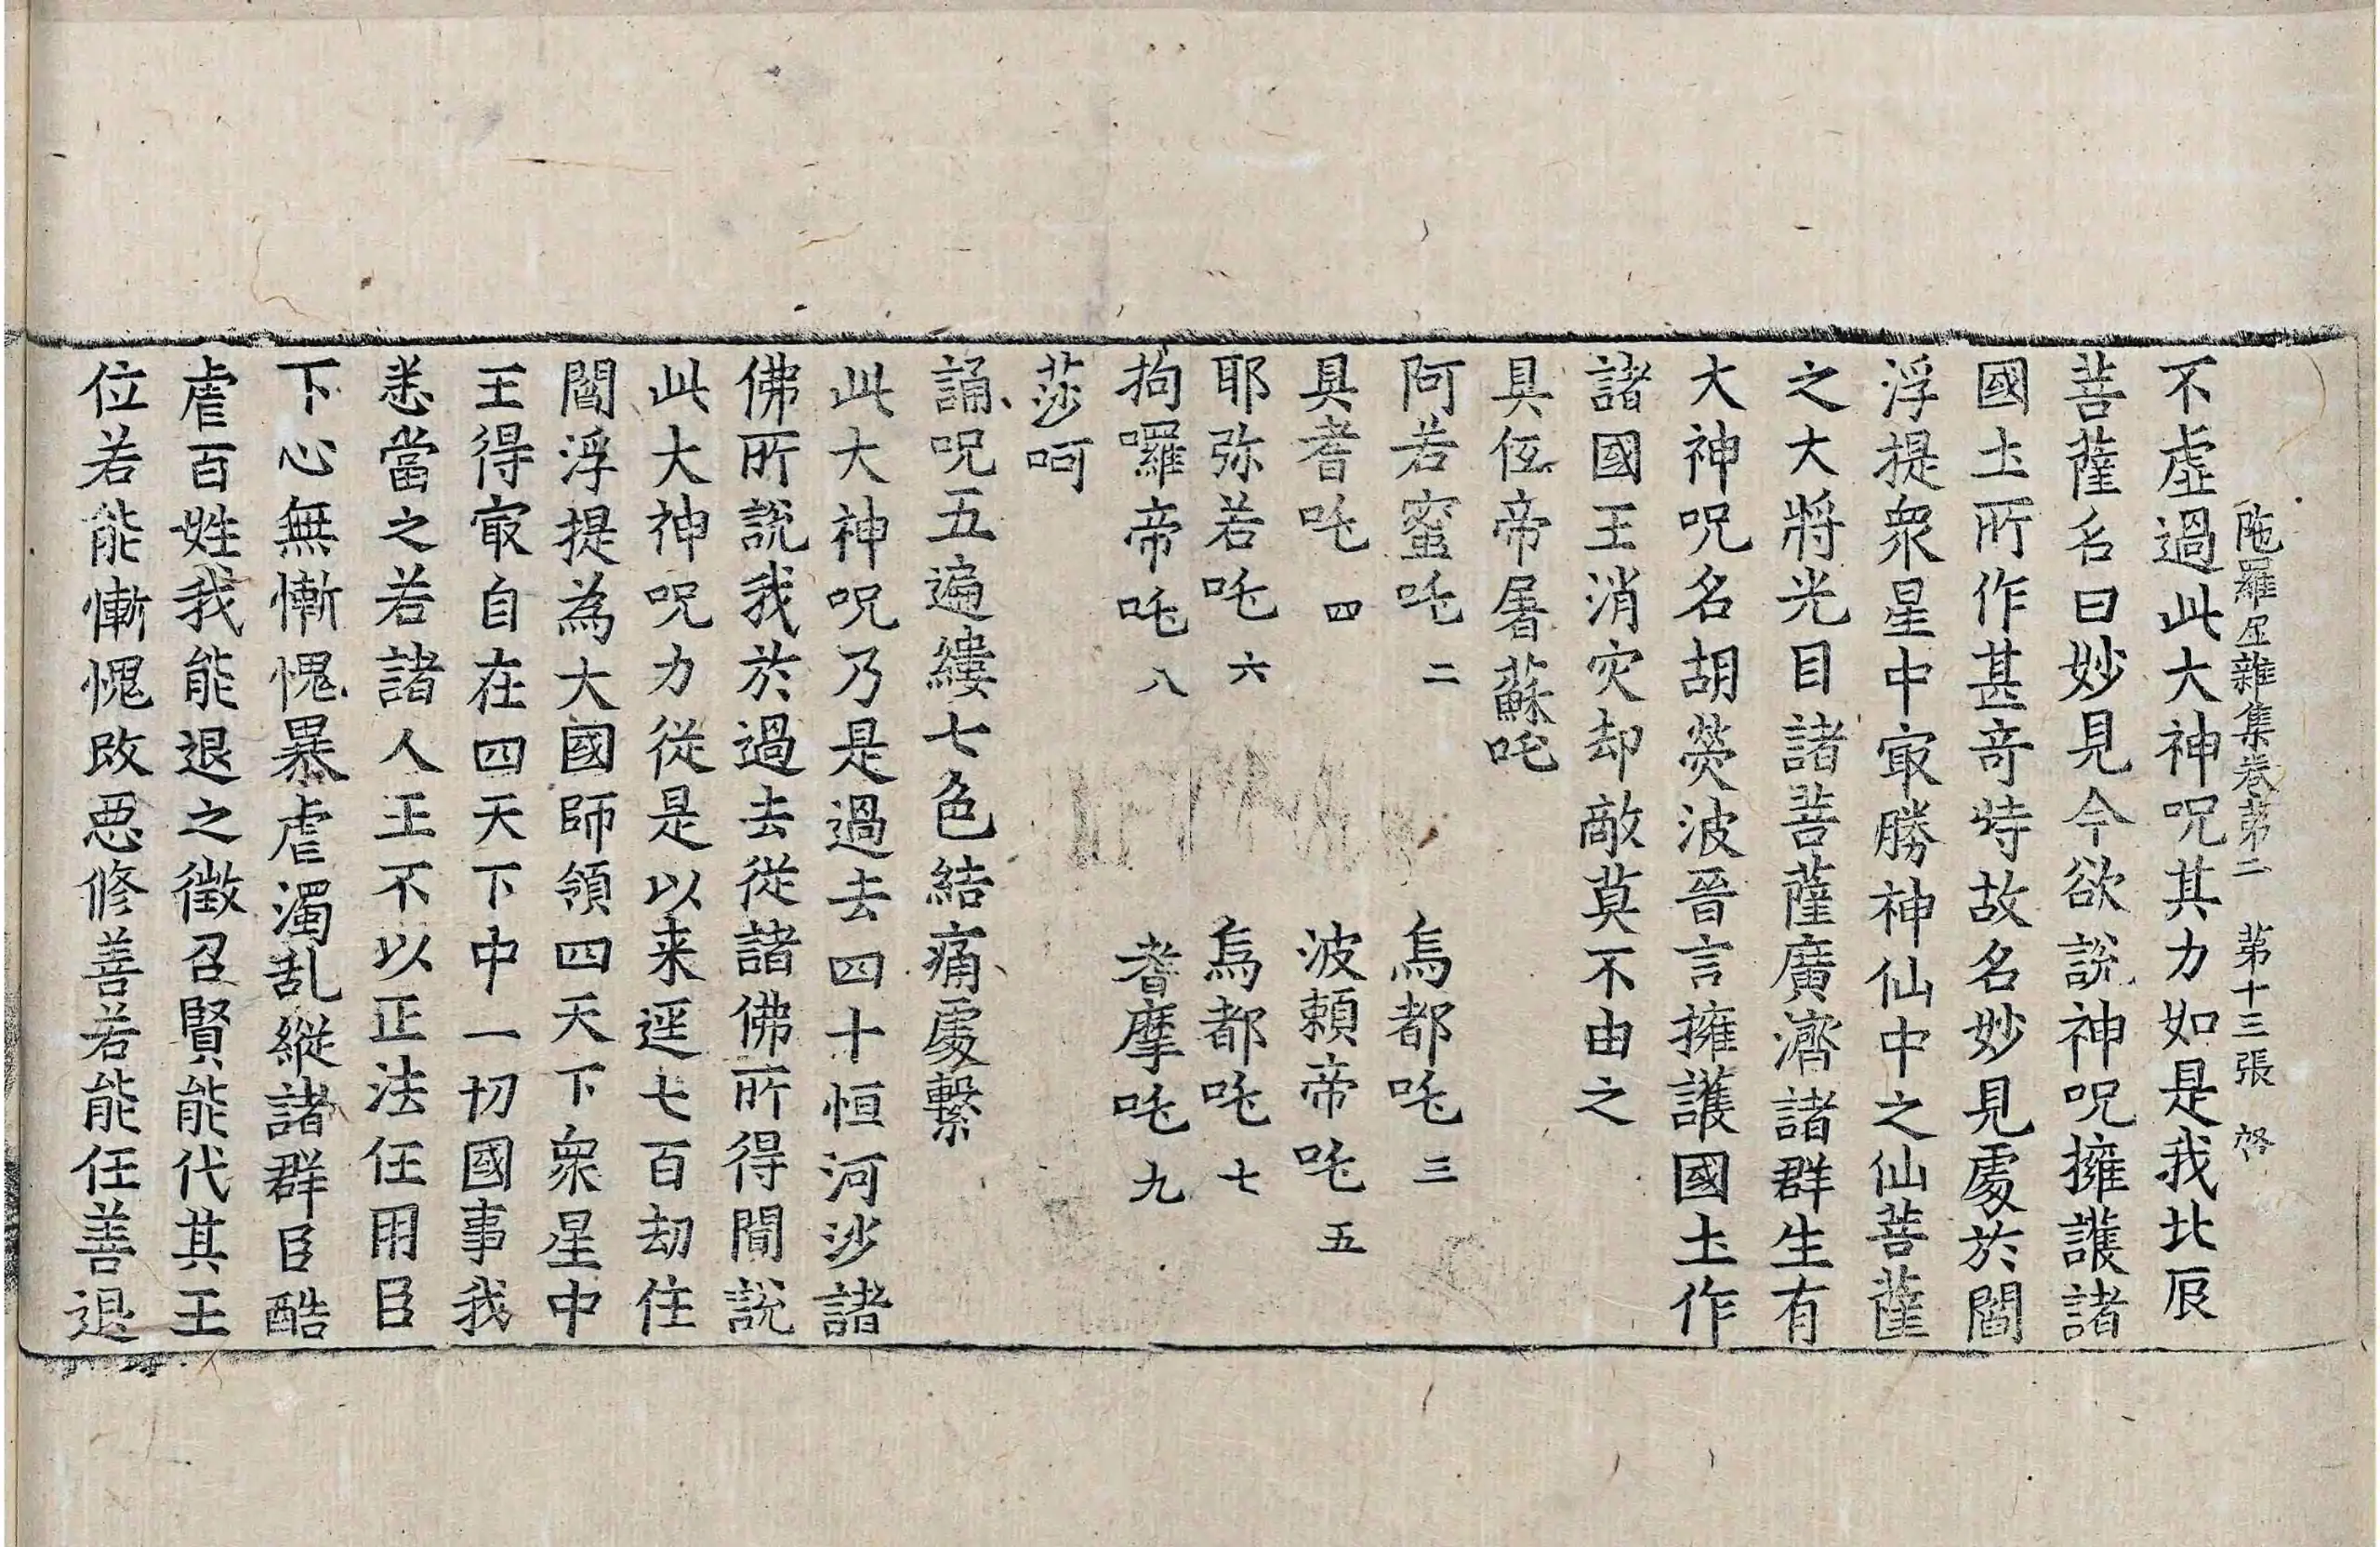 陁羅尼雜集卷第二　第十三張　啓
不虛過此大神呪其力如是我北辰
菩薩名曰妙見今欲說神呪擁護諸
國土所作甚竒特故名妙見處於閻
浮提衆星中㝡勝神仙中之仙菩薩
之大將光目諸菩薩廣濟諸群生有
大神呪名胡㷀波晉言擁護國土作
諸國王消灾却敵莫不由之
具低帝屠蘇吒
阿若蜜吒 二　烏都吒 三
具耆吒 四　波頼帝吒 五
耶弥若吒 六　烏都吒 七
拘囉帝吒 八　耆摩吒 九
莎呵
誦呪五遍縷七色結痛處繫
此大神呪乃是過去四十恒河沙諸
佛所說我於過去從諸佛所得聞說
此大神呪力從是以来逕七百劫住
閻浮提為大國師領四天下衆星中
王得㝡自在四天下中一切國事我
悉當之若諸人王不以正法任用臣
下心無慚愧暴虐濁乱縱諸群臣酷
虐百姓我能退之徵召賢能代其王
位若能慚愧改悪修善若能任善退